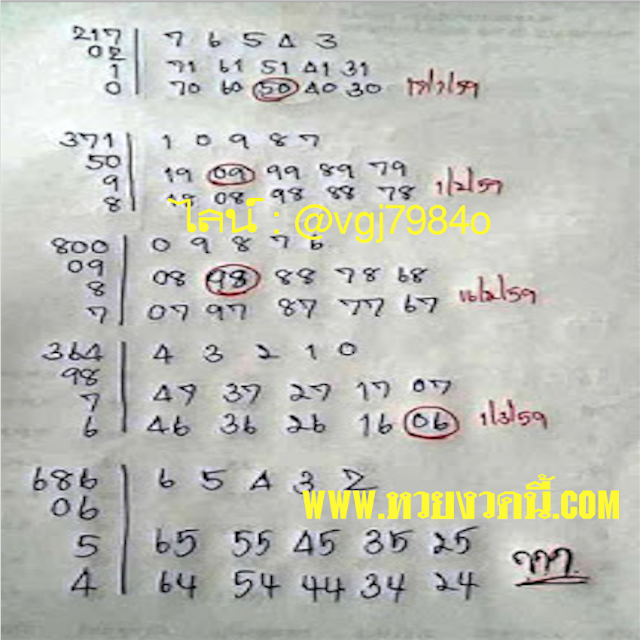 217 7 6 5 4 3
02
1 71 61 51 41 31
0 70 60 50 40 30
371 1 0 9 8 7
50
9 19 09 99 89 79
8 08 98 88 78
ไลน์ : @vgj7984o
800 0 9 8 7 6
09
8 08 98 88 78 68
7 07 97 87 77 67
364 4 3 2 1 0
98
7 47 37 27 17 07
6 46 36 26 16 06
686 6 5 4 3 2
06
www.หวยงวดนี้.com
5 65 55 45 35 25
4 64 54 44 34 24